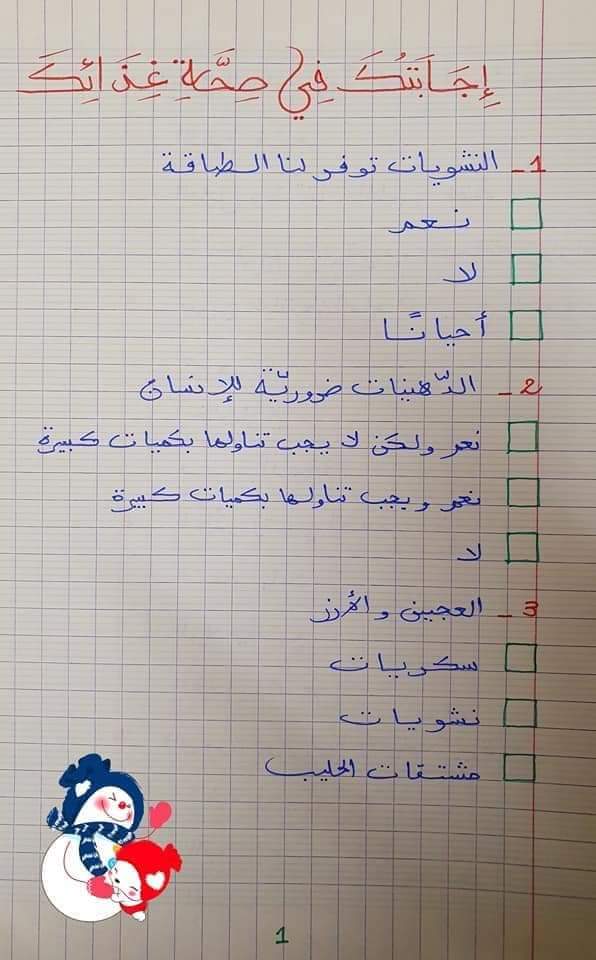 إِجَابَتُكَ فِي صِحَّةِ غِذَائِكَ
1 - النشويات توفر لنا الطاقة
نعم
لا
أحيانًا
2 - الدّهنيات ضروريّة للإنسان
نعم ولكن لا يجب تناولها بكميات كبيرة
نعم ويجب تناولها بكميات كبيرة
لا
3 - العجين والأرز
سكريات
نشويات
مشتقات الحليب
1